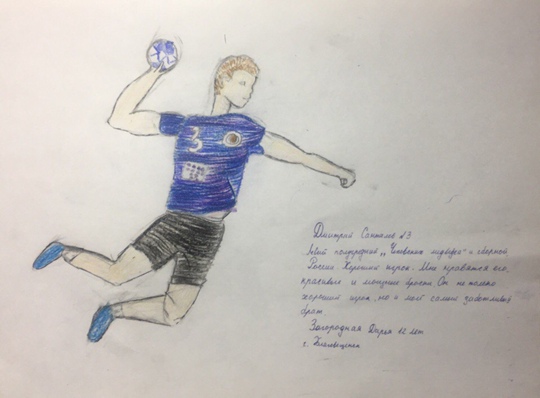 3
Дмитрий №3
Левый полусредний „Чеховских медведей" и сборной
России. Хороший игрок. Мне нравятся его
красивые и мощные броски. Он не только
хороший игрок, но и мой самый заботливый
брат
Загородная Дарья 12 лет
г.